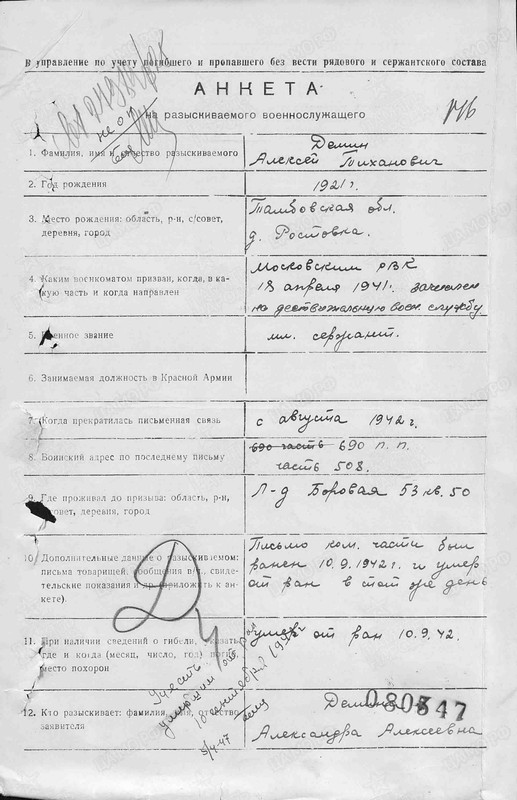 В управление по учету погибшего и пропавшего без вести рядового и сержантского состава
АНКЕТА
на разыскиваемого военнослужащего
1. Фамилия, имя и отчество разыскиваемого
Демин
Алексей Тиханович
2. Год рождения
1921 г.
3. Место рождения: область, р-н, с/совет,
деревня, город
Тамбовская обл.
д. Ростовка.
4. Каким военкоматом призван, когда, в какую часть и когда направлен
Московским РВК
18 апреля 1941 г. зачислен
на действительную воен. службу
5. Военное звание
мл. сержант.
6. Занимаемая должность в Красной Армии
7. Когда прекратилась письменная связь
с августа 1942 г.
8. Воинский адрес по последнему письму
690 часть 690 п. п.
часть 508.
9. Где проживал до призыва: область, р-н,
с/совет, деревня, город
Л-д Боровая 53 кв. 50
10. Дополнительные данные о разыскиваемом:
письма товарищей, сообщения в/ч, свидетельские показания и др. (приложить к анкете).
Письмо ком. части был
ранен 10.9.1942 г. и умер
от ран в тот же день
11. При наличии сведений о гибели, указать
где и когда (месяц, число, год) погиб
место похорон
умер от ран 10.9.42.
Учесть
умершим от ран
10 сентября 1942 г.
5/4-47
12. Кто разыскивает: фамилия, имя, отчество
заявителя
Демина
080847
Александра Алексеевна